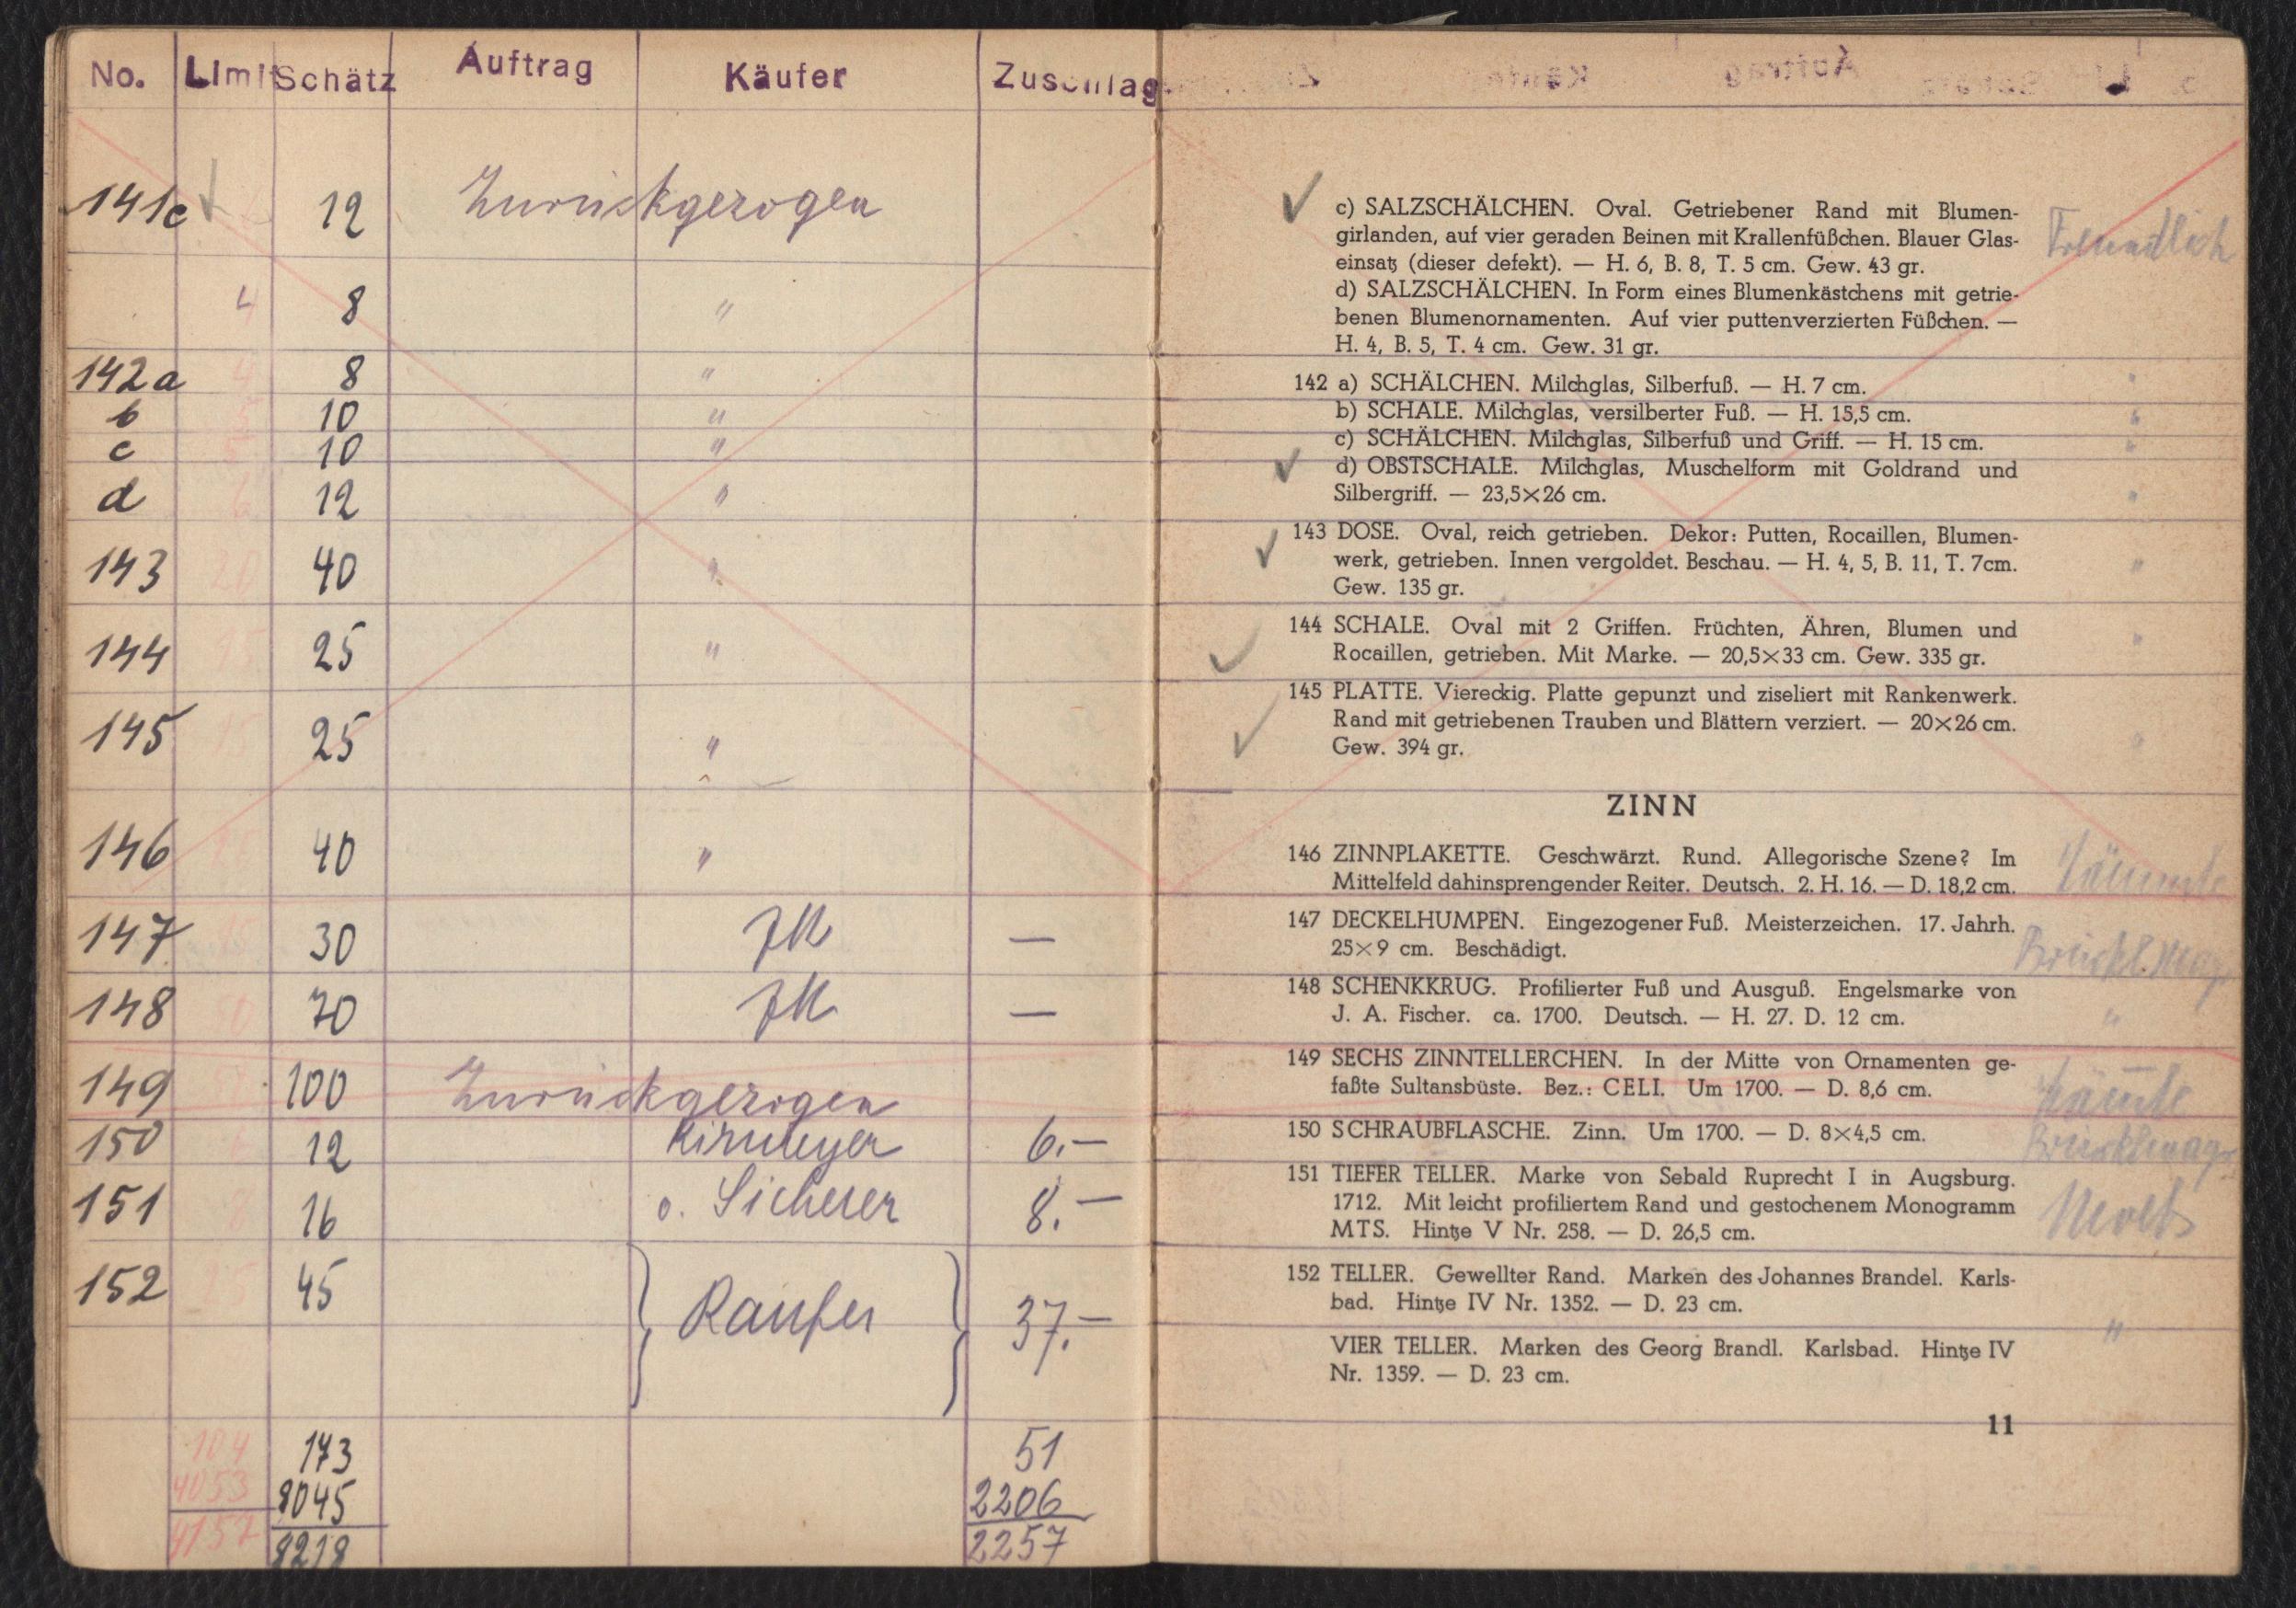 No. Limit Schätz Auftrag Käufer Zuschlag
141c 12 Zurückgezogen
4 8 "
142a 4 8 "
b 5 10 "
c 5 10 "
d 6 12 "
143 20 40 "
144 15 25 "
145 15 25 "
146 40 "
147 15 30 JM —
148 70 JM —
149 100 Zurückgezogen
150 6 12 Kirmeyer 6.—
151 8 16 v. Sicherer 8.—
152 25 45 } } 37.—
104 173 51
4053 8045 2206
4157 8218 2257
c) SALZSCHÄLCHEN. Oval. Getriebener Rand mit Blumen-
girlanden, auf vier geraden Beinen mit Krallenfüßchen. Blauer Glas-
einsatz (dieser defekt). — H. 6, B. 8, T. 5 cm. Gew. 43 gr.
Freundlich
d) SALZSCHÄLCHEN. In Form eines Blumenkästchens mit getrie-
benen Blumenornamenten. Auf vier puttenverzierten Füßchen. —
H. 4, B. 5, T. 4 cm. Gew. 31 gr.
142 a) SCHÄLCHEN. Milchglas, Silberfuß. — H. 7 cm. "
b) SCHALE. Milchglas, versilberter Fuß. — H. 15,5 cm. "
c) SCHÄLCHEN. Milchglas, Silberfuß und Griff. — H. 15 cm. "
d) OBSTSCHALE. Milchglas, Muschelform mit Goldrand und
Silbergriff. — 23,5×26 cm. "
143 DOSE. Oval, reich getrieben. Dekor: Putten, Rocaillen, Blumen-
werk, getrieben. Innen vergoldet. Beschau. — H. 4, 5, B. 11, T. 7cm. "
Gew. 135 gr.
144 SCHALE. Oval mit 2 Griffen. Früchten, Ähren, Blumen und "
Rocaillen, getrieben. Mit Marke. — 20,5×33 cm. Gew. 335 gr.
145 PLATTE. Viereckig. Platte gepunzt und ziseliert mit Rankenwerk.
Rand mit getriebenen Trauben und Blättern verziert. — 20×26 cm. "
Gew. 394 gr.
ZINN
146 ZINNPLAKETTE. Geschwärzt. Rund. Allegorische Szene? Im
Mittelfeld dahinsprengender Reiter. Deutsch. 2. H. 16. — D. 18,2 cm.
147 DECKELHUMPEN. Eingezogener Fuß. Meisterzeichen. 17. Jahrh.
25×9 cm. Beschädigt.
148 SCHENKKRUG. Profilierter Fuß und Ausguß. Engelsmarke von
J. A. Fischer. ca. 1700. Deutsch. — H. 27. D. 12 cm. "
149 SECHS ZINNTELLERCHEN. In der Mitte von Ornamenten ge-
faßte Sultansbüste. Bez.: CELI. Um 1700. — D. 8,6 cm.
150 SCHRAUBFLASCHE. Zinn. Um 1700. — D. 8×4,5 cm.
151 TIEFER TELLER. Marke von Sebald Ruprecht I in Augsburg.
1712. Mit leicht profiliertem Rand und gestochenem Monogramm
MTS. Hintze V Nr. 258. — D. 26,5 cm.
152 TELLER. Gewellter Rand. Marken des Johannes Brandel. Karls-
bad. Hintze IV Nr. 1352. — D. 23 cm.
"
VIER TELLER. Marken des Georg Brandl. Karlsbad. Hintze IV
Nr. 1359. — D. 23 cm.
11